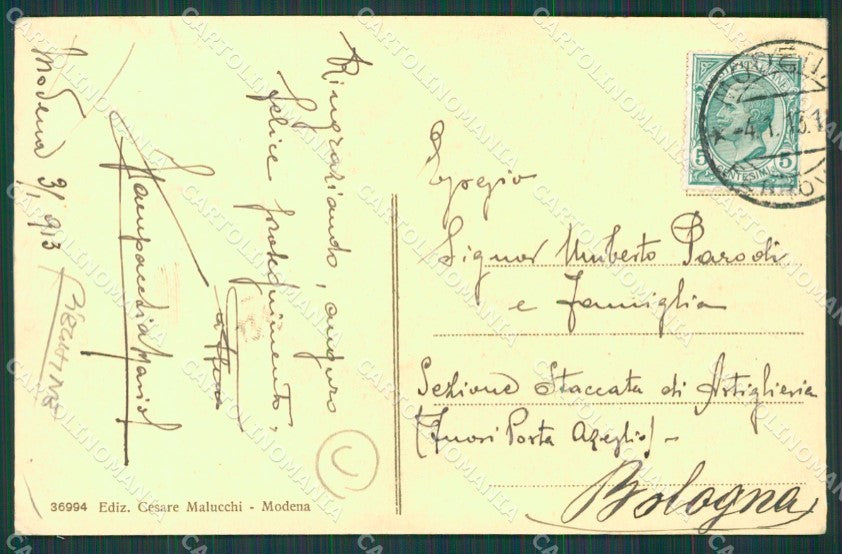 Modena 3/1 913
Ringraziando, auguro
felice proseguimento,
Egregio
Signor Umberto Parodi
e Famiglia
Sezione Staccata di Artiglieria
(Fuori Porta Azeglio) -
Bologna
36994 Ediz. Cesare Malucchi - Modena
5 5
CENTESIMI
-4.1.13.1
CARTOLINOMANIA